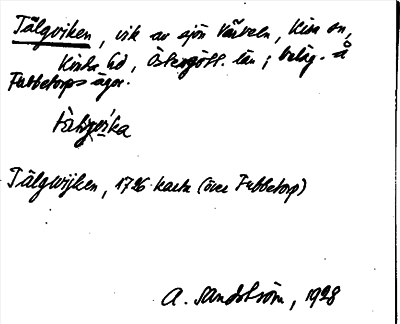 Tälgviken, vik av sjön Vårveln, Kisa sn,
Kinda hd, Östergötl. län; beläg. å
Fubbetorps ägor.
Tälgwijken, 1726 karta (över Fubbetorp)
A. Sandström, 1928